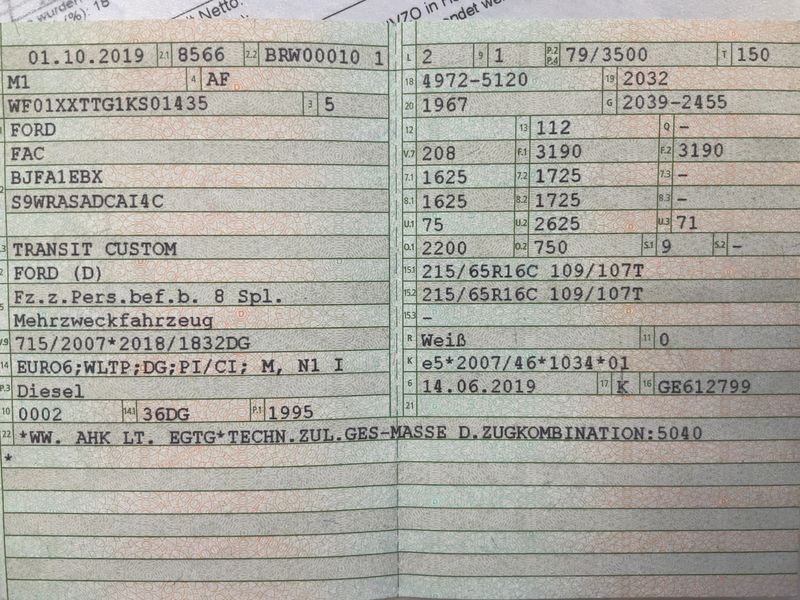 wurden
(%): 18
it Netto:
VZO in
endet we
01.10.2019 2.1 8566 2.2 BRW00010 1
M1 4 AF
WF01XXTTG1KS01435 3 5
FORD
FAC
BJFA1EBX
S9WRASADCAI4C
TRANSIT CUSTOM
FORD (D)
Fz.z.Pers.bef.b. 8 Spl.
Mehrzweckfahrzeug
V.9 715/2007*2018/1832DG
14 EURO6;WLTP;DG;PI/CI; M, N1 I
P.3 Diesel
10 0002 14.1 36DG P.1 1995
22 *WW. AHK LT. EGTG*TECHN.ZUL.GES-MASSE D.ZUGKOMBINATION:5040
*
L 2 9 1 P.2 P.4 79/3500 T 150
18 4972-5120 19 2032
20 1967 G 2039-2455
12 13 112 Q -
V.7 208 F.1 3190 F.2 3190
7.1 1625 7.2 1725 7.3 -
8.1 1625 8.2 1725 8.3 -
U.1 75 U.2 2625 U.3 71
O.1 2200 O.2 750 S.1 9 S.2 -
15.1 215/65R16C 109/107T
15.2 215/65R16C 109/107T
15.3 -
R Weiß 11 0
K e5*2007/46*1034*01
6 14.06.2019 17 K 16 GE612799
21